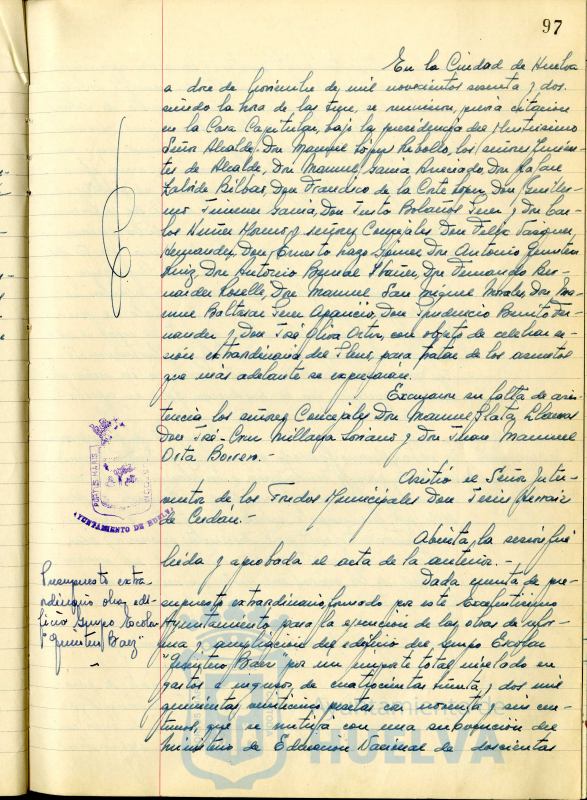 97
En la Ciudad de Huelva
a doce de Noviembre de mil novecientos sesenta y dos
siendo la hora de las trece, se reunieron, previa citacion
en la Casa Capitular, bajo la presidencia del Ilustrisimo
Señor Alcalde, Don Manuel López Rebollo, los señores Tenien-
tes de Alcalde, Don Manuel Garcia Don Rafael
Bilbao, Don Francisco de la Corte López, Don Guiller-
mo Jimenez Garcia, Don Justo Bolaños Perez y Don Car-
los Nuñez Moreno y señores Concejales Don Felix Vazquez
Hernandez, Don Ernesto Lazo Don Antonio
Ruiz, Don Antonio Ibañez, Don Fernando Her-
nandez Roselló, Don Manuel San Miguel Morales, Don Ma-
nuel Baltasar Perez Aparicio, Don Prudencio Benito Fer-
nandez y Don José Oliva Ortiz, con objeto de celebrar se-
sión extraordinaria del Pleno, para tratar de los asuntos
que más adelante se expresarán.
Excusaron su falta de asis-
tencia los señores Concejales Don Manuel Plata Llanes
Don José-Cruz Millaga Soriano y Don Manuel
Orta Borrero.-
Asistió el Señor Inter-
ventor de los Fondos Municipales Don Jesús
de Cerdán.-
Abierta la sesión fué
leída y aprobada el acta de la anterior.-
Presupuesto extra-
ordinario obras edi-
ficio Grupo Escolar
"Quintero Baez"
Dada cuenta de pre-
supuesto extraordinario formado por este Excelentisimo
Ayuntamiento para la ejecucion de las obras de refor-
ma y ampliacion del edificio del Grupo Escolar
"Quintero Baez" por un importe total nivelado en
gastos e ingresos, de cuatrocientas treinta y dos mil
quinientas veinticinco pesetas con noventa y seis cen-
timos, que se nutirá con una subvencion del
Ministerio de Educacion Nacional de doscientas
PORTUS MARIS
AYUNTAMIENTO DE HUELVA
Ayuntamiento de
HUELVA